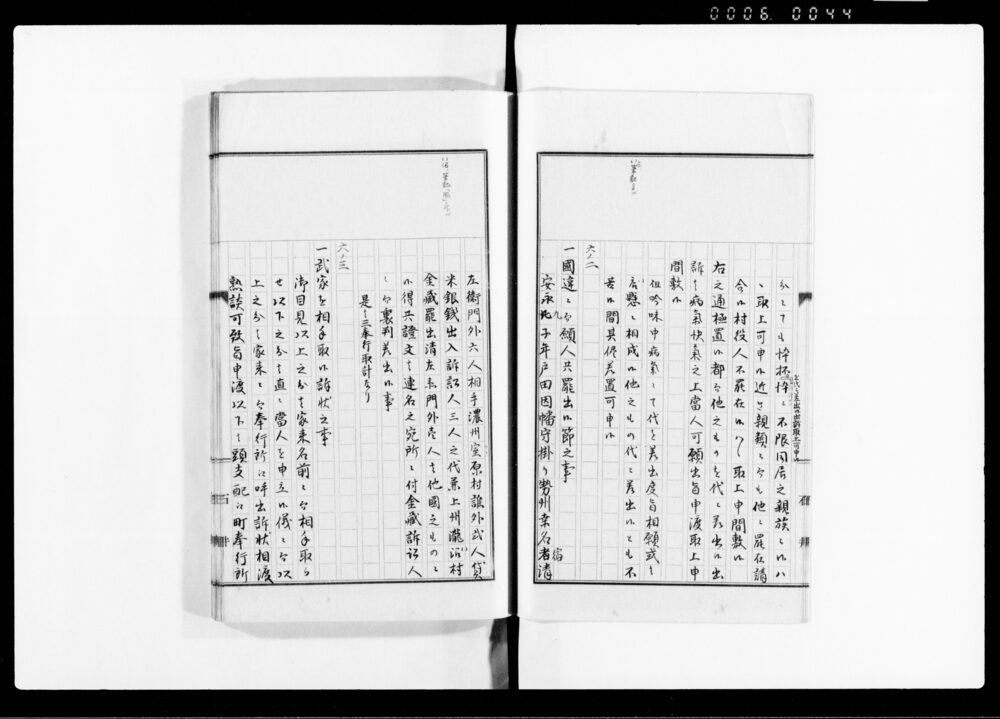 0006. 0044
ゟ之ても忰抔忰ニ不限同居之親族ニ候ハ
ゝ取上可申候近き親類ニ而も他ニ罷在請
令候村役人不罷在候ハゝ取上申間敷候
右之通極置候都而他之ものを代ニ差出候出
訴ハ病氣快氣之上當人可願出旨申渡取上申
間敷候
但吟味中病氣ニ而代を差出度旨相願或ハ
居懸ニ相成候他之もの代ニ差出候とも不
苦候間其侭差置可申候
六ノ二
一國違ニ而願人共罷出候節之事
安永九子年戸田因幡守掛り勢州桑名宿清
左衛門外六人相手濃州室原村誰外弐人貸
米銀銭出入訴訟人三人之代兼上州瀧沢村
金藏罷出清左衛門外壱人ハ他國之ものニ
候得共證文ハ連名之宛所ニ付金藏訴訟人
ニ而裏判差出候事
是ハ三奉行取計なり
六ノ三
一武家を相手取候訴状之事
御目見以上之分ハ家来名前ニ而相手取ら
せ以下之分ハ直ニ當人を申立候儀ニ而以
上之分ハ家来ニ而奉行所江呼出訴状相渡
熟談可致旨申渡以下ハ頭支配江町奉行所